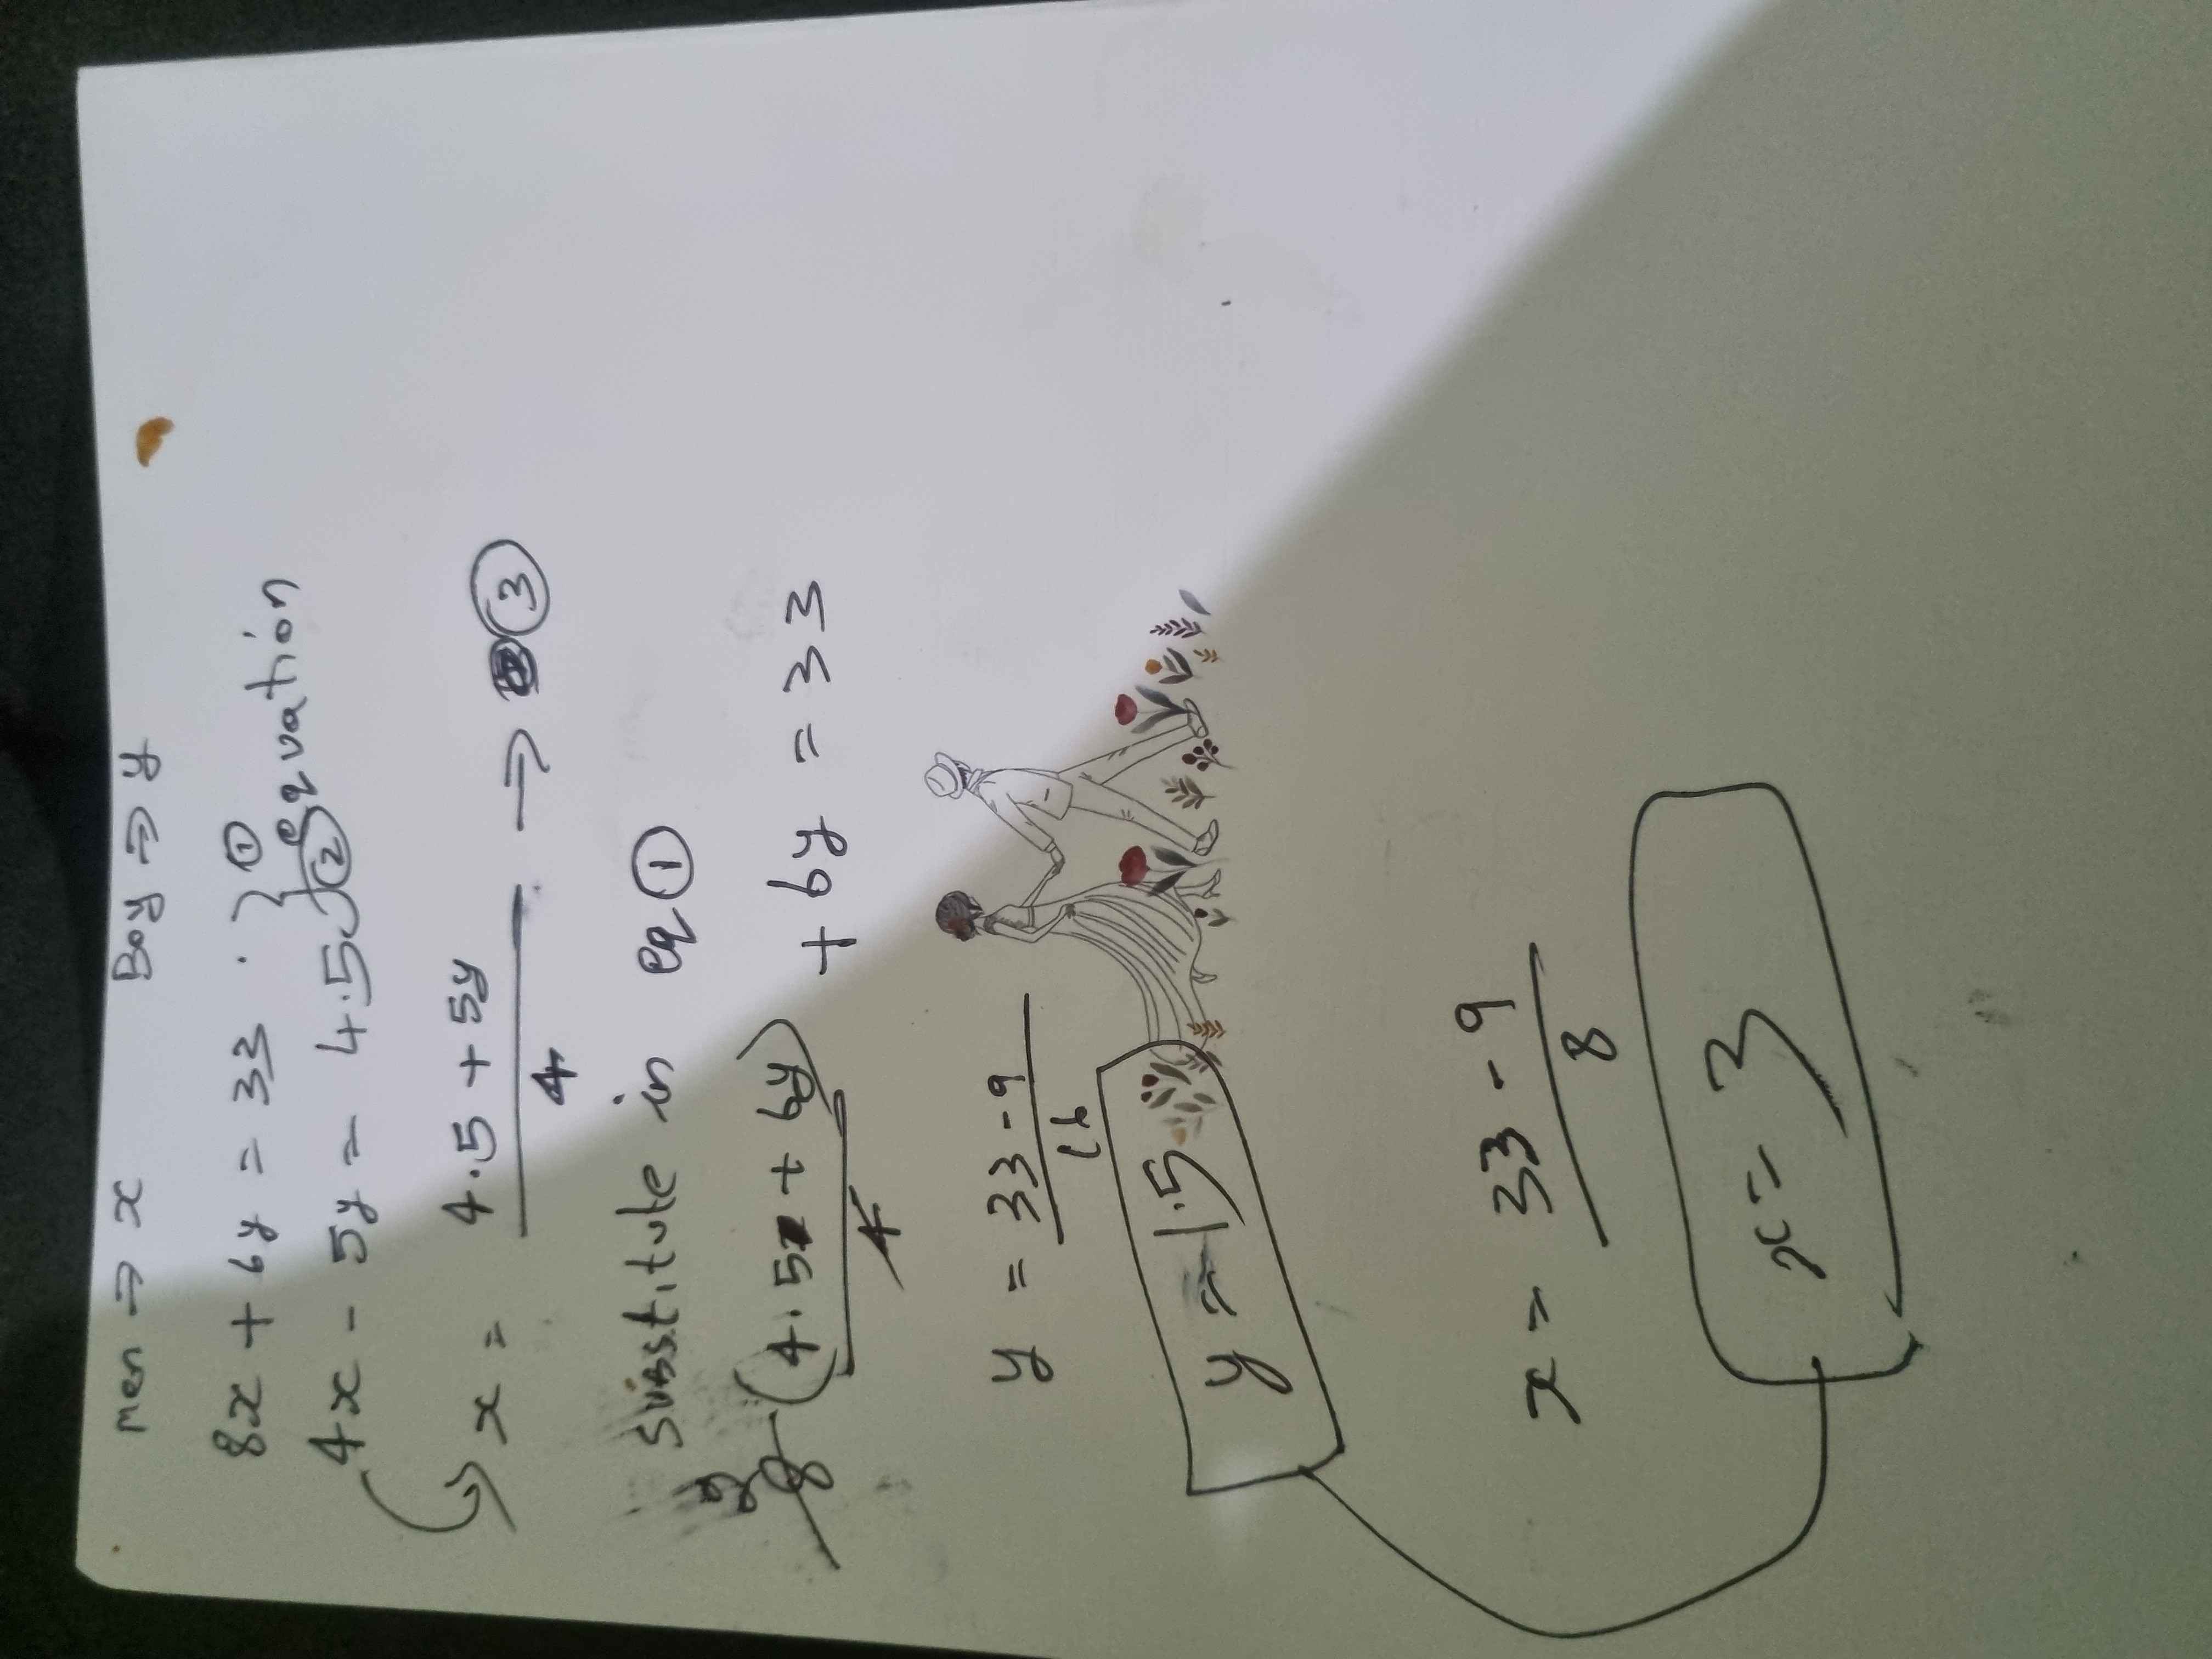 Men → x Boy → y
8x + 6y = 33 . } ①
equation
4x - 5y = 4.5 } ②
x = 4.5 + 5y → ③
4
Substitute in eq ①
2
8 (4.5 + 6y) + 6y = 33
4
y = 33 - 9
16
y = 1.5
x = 33 - 9
8
x = 3